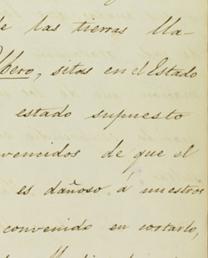 de las tierras lla-
bero, sitos en el Estado
estado supuesto
vencidos de que el
es dañoso á nuestros
convenido en cortarlo,